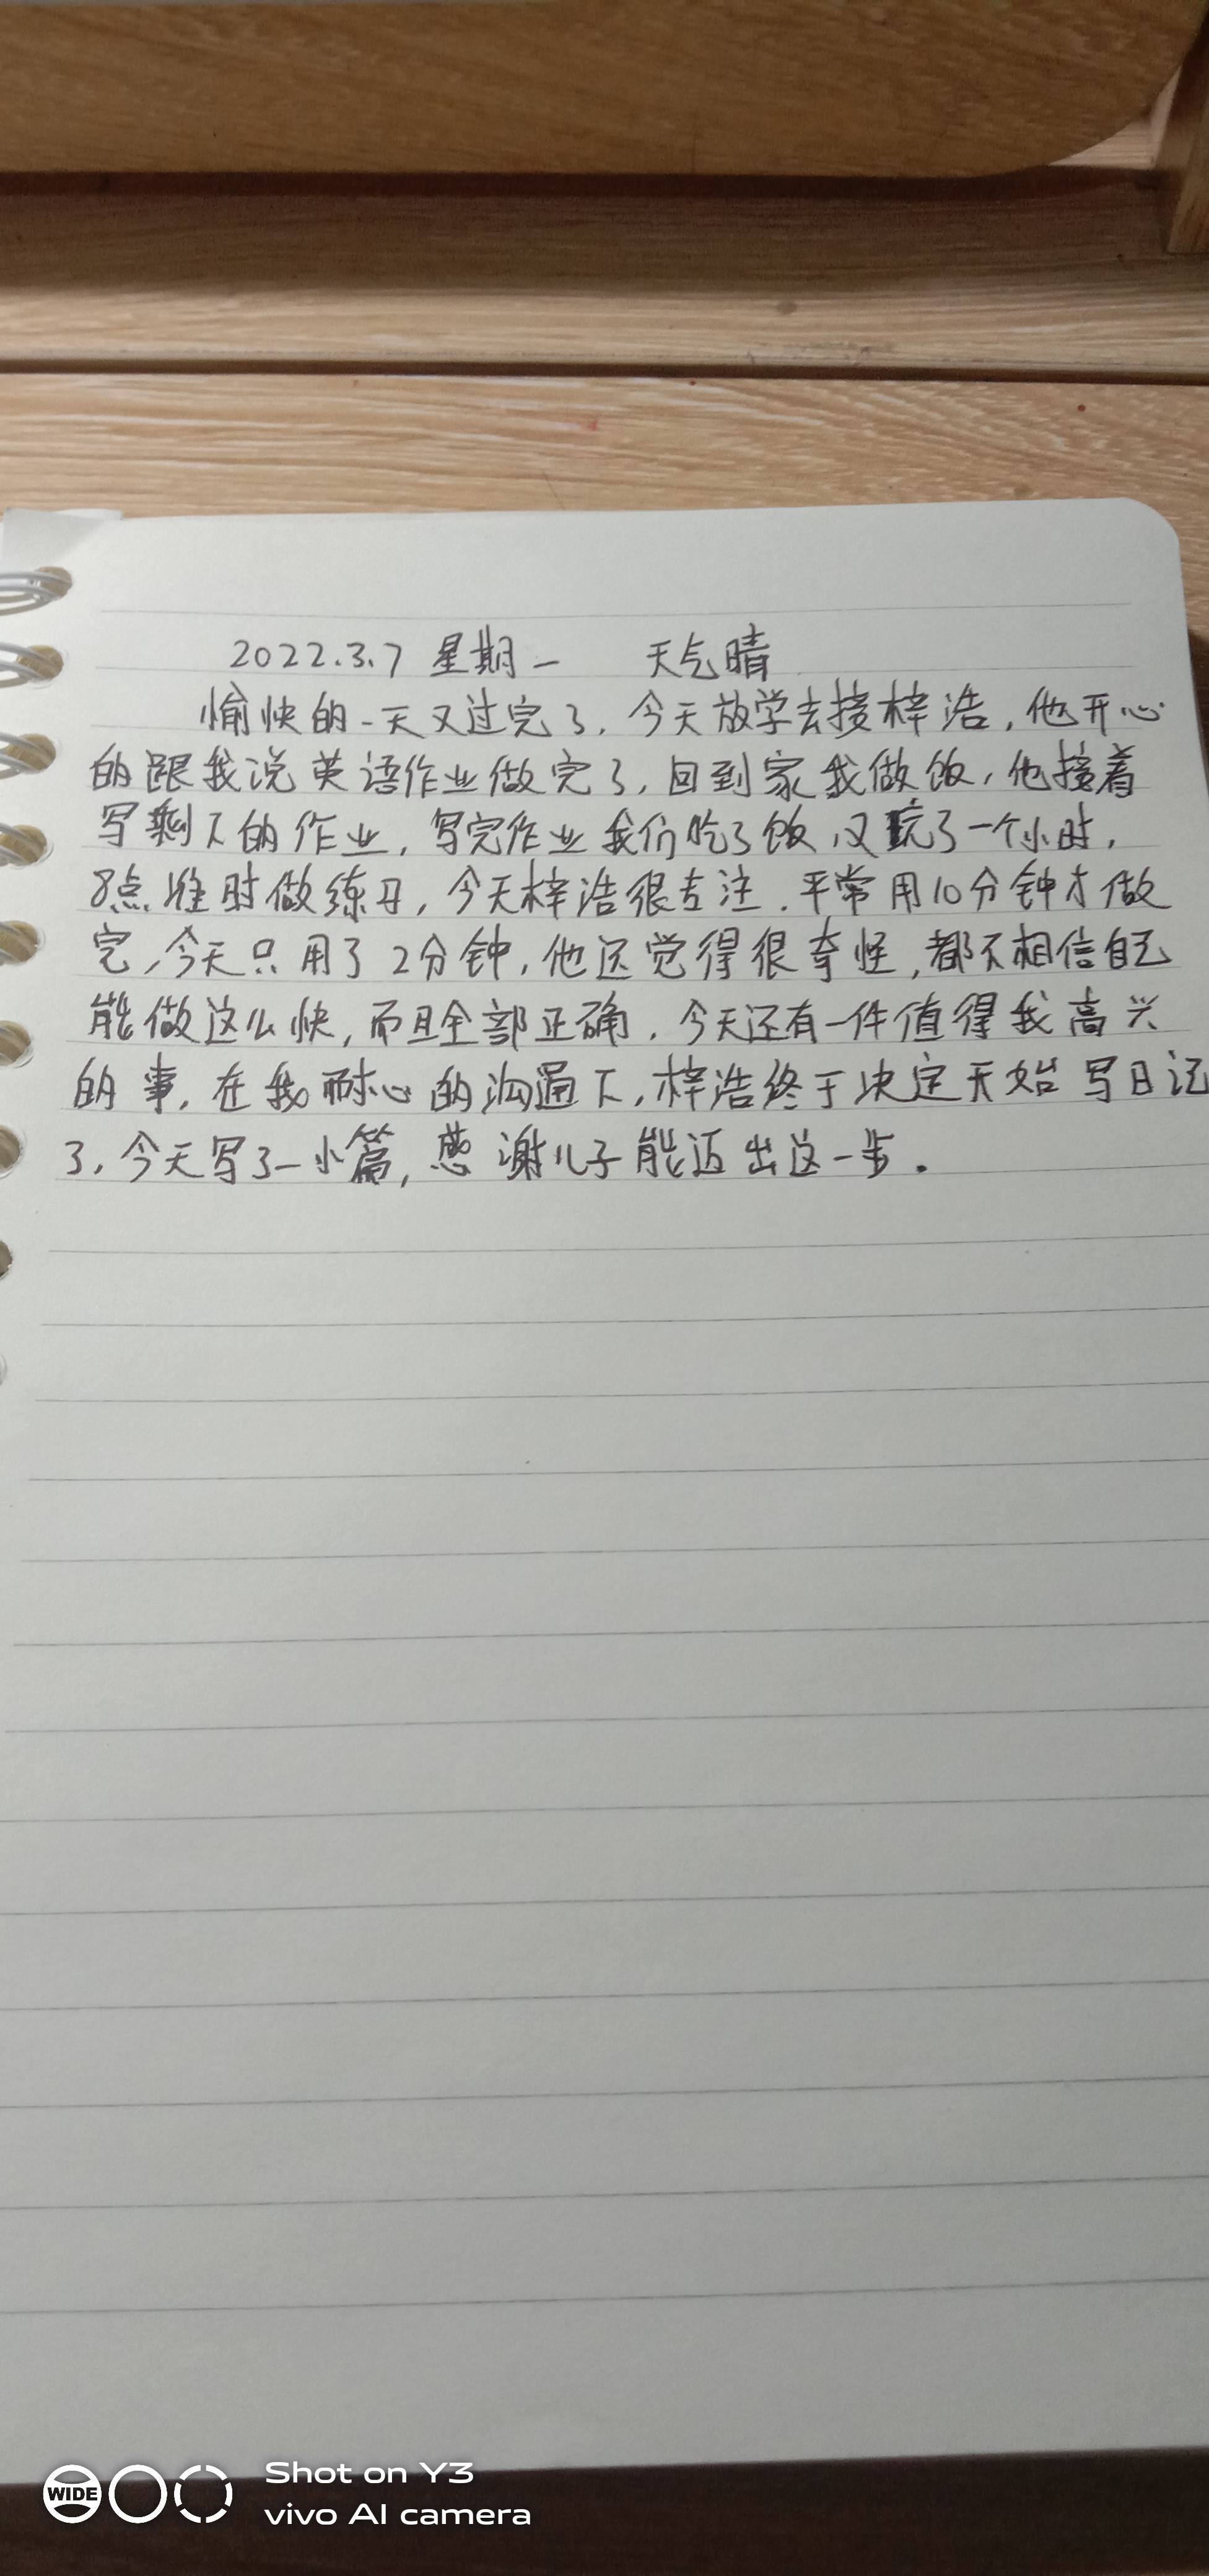 2022.3.7 星期一 天气晴
愉快的一天又过完了，今天放学去接梓浩，他开心
的跟我说英语作业做完了，回到家我做饭，他接着
写剩下的作业，写完作业我们吃了饭，又玩了一个小时，
8点准时做练习，今天梓浩很专注．平常用10分钟才做
完，今天只用了2分钟，他还觉得很奇怪，都不相信自己
能做这么快，而且全部正确．今天还有一件值得我高兴
的事，在我耐心的沟通下，梓浩终于决定开始写日记
了，今天写了一小篇，感谢儿子能迈出这一步．
WIDE
Shot on Y3
vivo AI camera